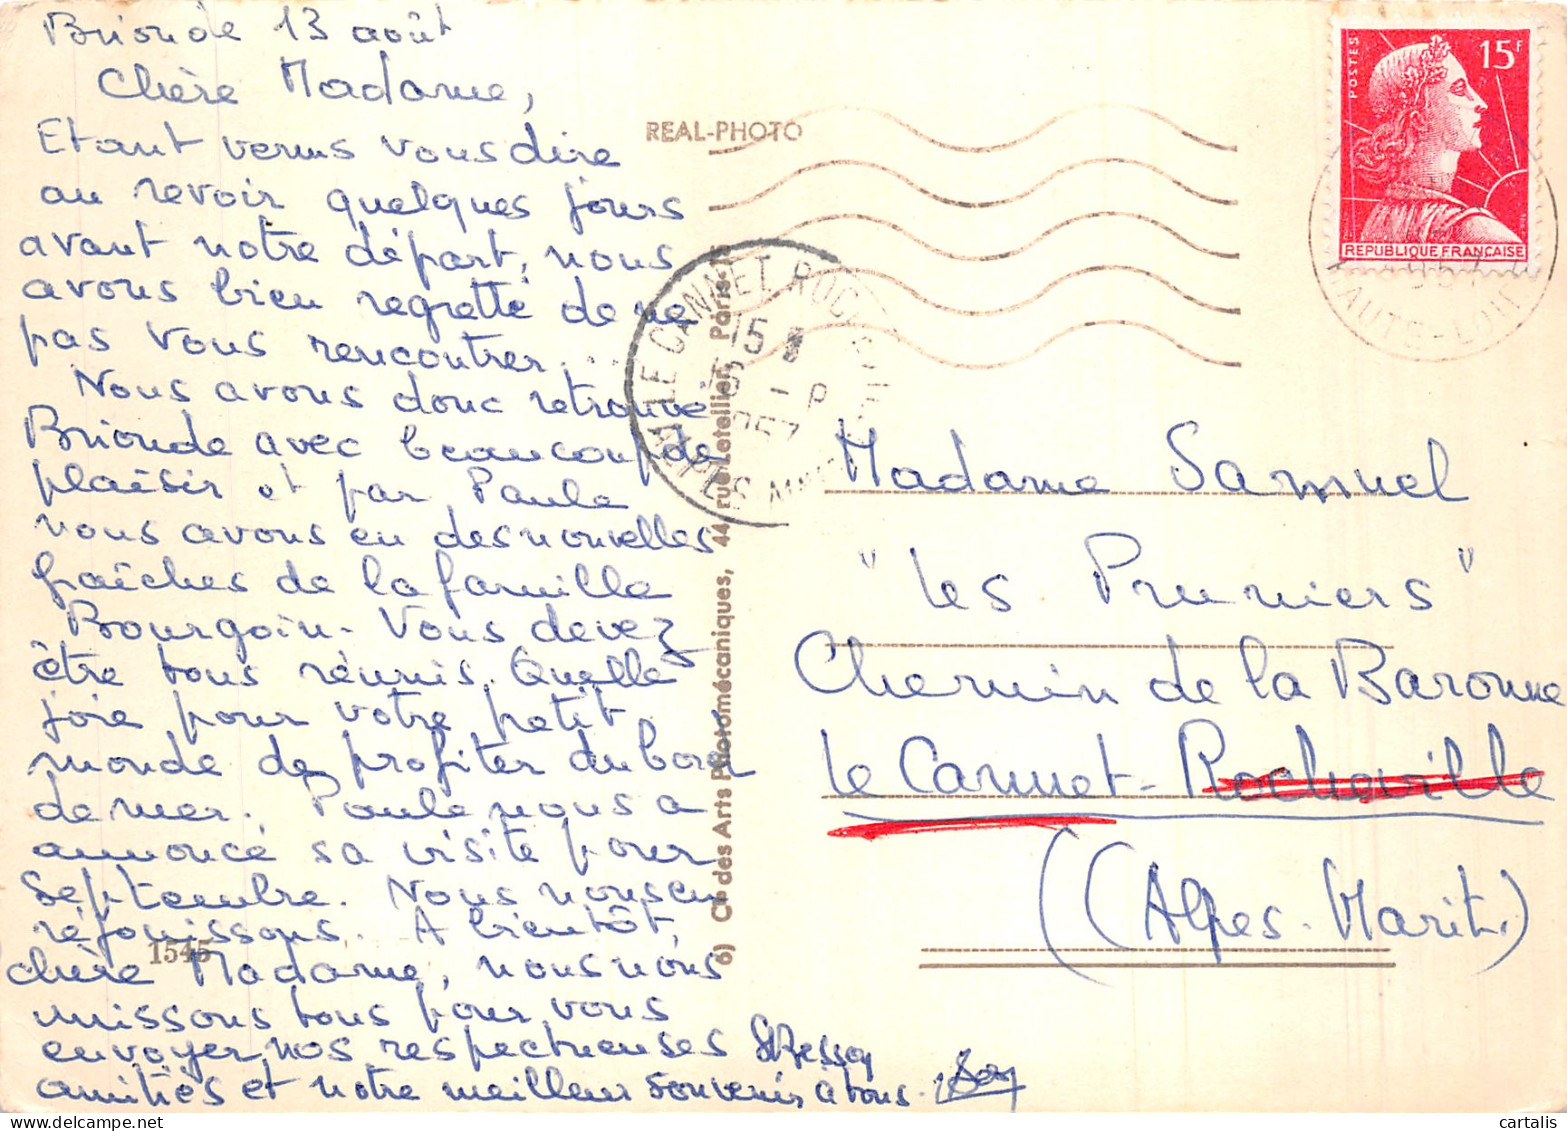 Brioude 13 août
Chère Madame,
Etant venus vous dire
au revoir quelques jours
avant notre départ, nous
avons bien regretté de ne
pas vous rencontrer...
Nous avons donc retrouvé
Brioude avec beaucoup de
plaisir et par Paule
nous avons eu des nouvelles
fraîches de la famille
Bourgoin - Vous devez
être tous réunis. Quelle
joie pour votre petit
monde de profiter du bord
de mer. Paule nous a
annoncé sa visite pour
Septembre. Nous nous en
réjouissons. A bientôt,
chère Madame, nous nous
unissons tous pour vous
envoyer nos respectueuses
amitiés et notre meilleur souvenir à tous.
1545
REAL-PHOTO
6) Cie des Arts Photomécaniques, 44 rue Letellier, Paris-
LE CANNET ROCHEVILLE
15
- 8
1957
ALPES MMES
POSTES
15F
REPUBLIQUE FRANÇAISE
HAUTE-LOIRE
Madame Samuel
"Les Pruniers"
Chemin de la Baronne
Le Cannet-Rocheville
(Alpes-Marit.)